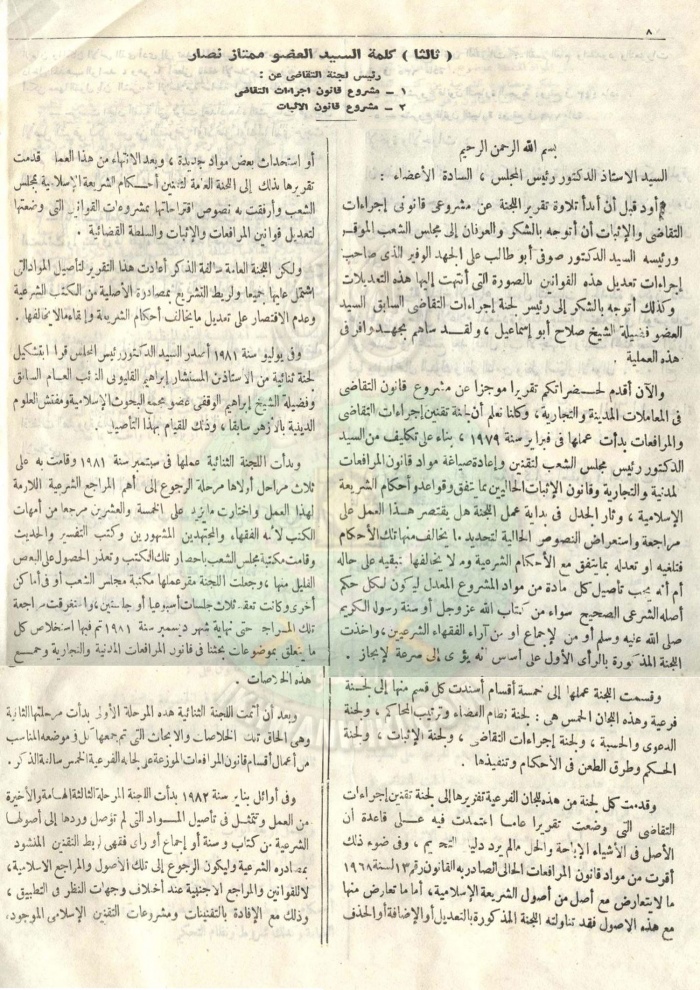 ٨
( ثالثا ) كلمة السيد العضو ممتاز نصار
رئيس لجنة التقاضى عن :
١ - مشروع قانون اجراءات التقاضى
٢ - مشروع قانون الاثبات
بسم الله الرحمن الرحيم
السيد الاستاذ الدكتور رئيس المجلس ، السادة الأعضاء :
أود قبل أن أبدأ تلاوة تقرير اللجنة عن مشروعى قانونى إجراءات
التقاضى والإثبات أن أتوجه بالشكر والعرفان إلى مجلس الشعب الموقر
ورئيسه السيد الدكتور صوفى أبو طالب على الجهد الوفير الذى صاحب
إجراءات تعديل هذه القوانين بالصورة التى أنتهت إليها هذه التعديلات
وكذلك أتوجه بالشكر إلى رئيس لجنة إجراءات التقاضى السابق السيد
العضو فضيلة الشيخ صلاح أبو إسماعيل ، ولقد ساهم بجهد وافر فى
هذه العملية .
والآن أقدم لحضراتكم تقريرا موجزا عن مشروع قانون التقاضى
فى المعاملات المدنية والتجارية ، وكلنا نعلم أن لجنة تقنين إجراءات التقاضى
والمرافعات بدأت عملها فى فبراير سنة ١٩٧٩ ، بناء على تكليف من السيد
الدكتور رئيس مجلس الشعب لتقنين وإعادة صياغة مواد قانون المرافعات
لمدنية والتجارية وقانون الإثبات الحاليين بما يتفق وقواعد وأحكام الشريعة
الإسلامية ، وثار الجدل فى بداية عمل اللجنة هل يقتصر هذا العمل على
مراجعة واستعراض النصوص الحالية لتحديد ما يخالف منها تلك الأحكام
فتلغيه او تعدله بما يتفق مع الأحكام الشرعية وما لا يخالفها تبقيه على حاله
أم أنه يجب تأصيل كل مادة من مواد المشروع المعدل ليكون لكل حكم
أصله الشرعى الصحيح سواء من كتاب الله عز وجل أو سنة رسوله الكريم
صلى الله عليه وسلم أو من الإجماع او من آراء الفقهاء الشرعيين ، واخذت
اللجنة المذكورة بالرأى الأول على أساس أنه يؤدى إلى سرعة الإنجاز .
وقسمت اللجنة عملها إلى خمسة أقسام أسندت كل قسم منها إلى لجنة
فرعية وهذه اللجان الخمس هى : لجنة نظام القضاء وترتيب المحاكم ، ولجنة
الدعوى والحسبة ، ولجنة إجراءات التقاضى ، ولجنة الإثبات ، ولجنة
الحكم وطرق الطعن فى الأحكام وتنفيذها .
وقدمت كل لجنة من هذه اللجان الفرعية تقريرها إلى لجنة تقنين إجراءات
التقاضى التى وضعت تقريرا عاما اعتمدت فيه على قاعدة أن
الأصل فى الأشياء الإباحة والحل مالم يرد دليل التحريم ، وفى ضوء ذلك
أقرت من مواد قانون المرافعات الحالى الصادر به القانون رقم ١٣ لسنة ١٩٦٨
ما لا يتعارض مع أصل من أصول الشريعة الإسلامية ، أما ما تعارض منها
مع هذه الاصول فقد تناولته اللجنة المذكورة بالتعديل أو الإضافة أو الحذف
أو استحداث بعض مواد جديدة ، وبعد الانتهاء من هذا العمل قدمت
تقريرها بذلك إلى اللجنة العامة لتقنين أحكام الشريعة الإسلامية بمجلس
الشعب وأرفقت به نصوص اقتراحاتها بمشروعات القوانين التى وضعتها
لتعديل قوانين المرافعات والإثبات والسلطة القضائية .
ولكن اللجنة العامة سالفة الذكر أعادت هذا التقرير لتأصيل المواد التى
اشتمل عليها جميعا ولربط التشريع بمصادره الأصلية من الكتب الشرعية
وعدم الاقتصار على تعديل ما يخالف أحكام الشريعة وإبقاء مالا يخالفها .
وفى يوليو سنة ١٩٨١ أصدر السيد الدكتور رئيس المجلس قرارا بتشكيل
لجنة ثنائية من الأستاذين المستشار إبراهيم القليوبى النائب العام السابق
وفضيلة الشيخ إبراهيم الوقفى عضو مجمع البحوث الإسلامية ومفتش العلوم
الدينية بالأزهر سابقا ، وذلك للقيام بهذا التأصيل .
وبدأت اللجنة الثنائية عملها فى سبتمبر سنة ١٩٨١ وقامت به على
ثلاث مراحل أولاها مرحلة الرجوع إلى أهم المراجع الشرعية اللازمة
لهذا العمل واختارت ما يزيد على الخمسة والعشرين مرجعا من أمهات
الكتب لأئمة الفقهاء والمجتهدين المشهورين وكتب التفسير والحديث
وقامت مكتبة مجلس الشعب بإحضار تلك الكتب وتعذر الحصول على البعض
القليل منها ، وجعلت اللجنة مقر عملها مكتبة مجلس الشعب أو فى أماكن
أخرى وكانت تعقد ثلاث جلسات أسبوعيا أو جلستين ، واستغرقت مراجعة
تلك المراجع حتى نهاية شهر ديسمبر سنة ١٩٨١ تم فيها استخلاص كل
ما يتعلق بموضوعات بحثنا فى قانون المرافعات المدنية والتجارية وجمع
هذه الخلاصات .
وبعد أن أتمت اللجنة الثنائية هذه المرحلة الأولى بدأت مرحلتها الثانية
وهى إلحاق تلك الخلاصات والابحاث التى تم جمعها كل فى موضعه المناسب
من أعمال أقسام قانون المرافعات الموزعة على لجانه الفرعية الخمس سالفة الذكر .
وفى أوائل يناير سنة ١٩٨٢ بدأت اللجنة المرحلة الثالثة الهامة والأخيرة
من العمل وتتمثل فى تأصيل المواد التى لم تؤصل وردها إلى أصولها
الشرعية من كتاب وسنة أو إجماع أو رأى فقهى لربط التقنين المنشود
بمصادره الشرعية وليكون الرجوع إلى تلك الأصول والمراجع الإسلامية ،
لا للقوانين والمراجع الاجنبية عند أختلاف وجهات النظر فى التطبيق ،
وذلك مع الإفادة بالتقنينات ومشروعات التقنين الإسلامى الموجود ،